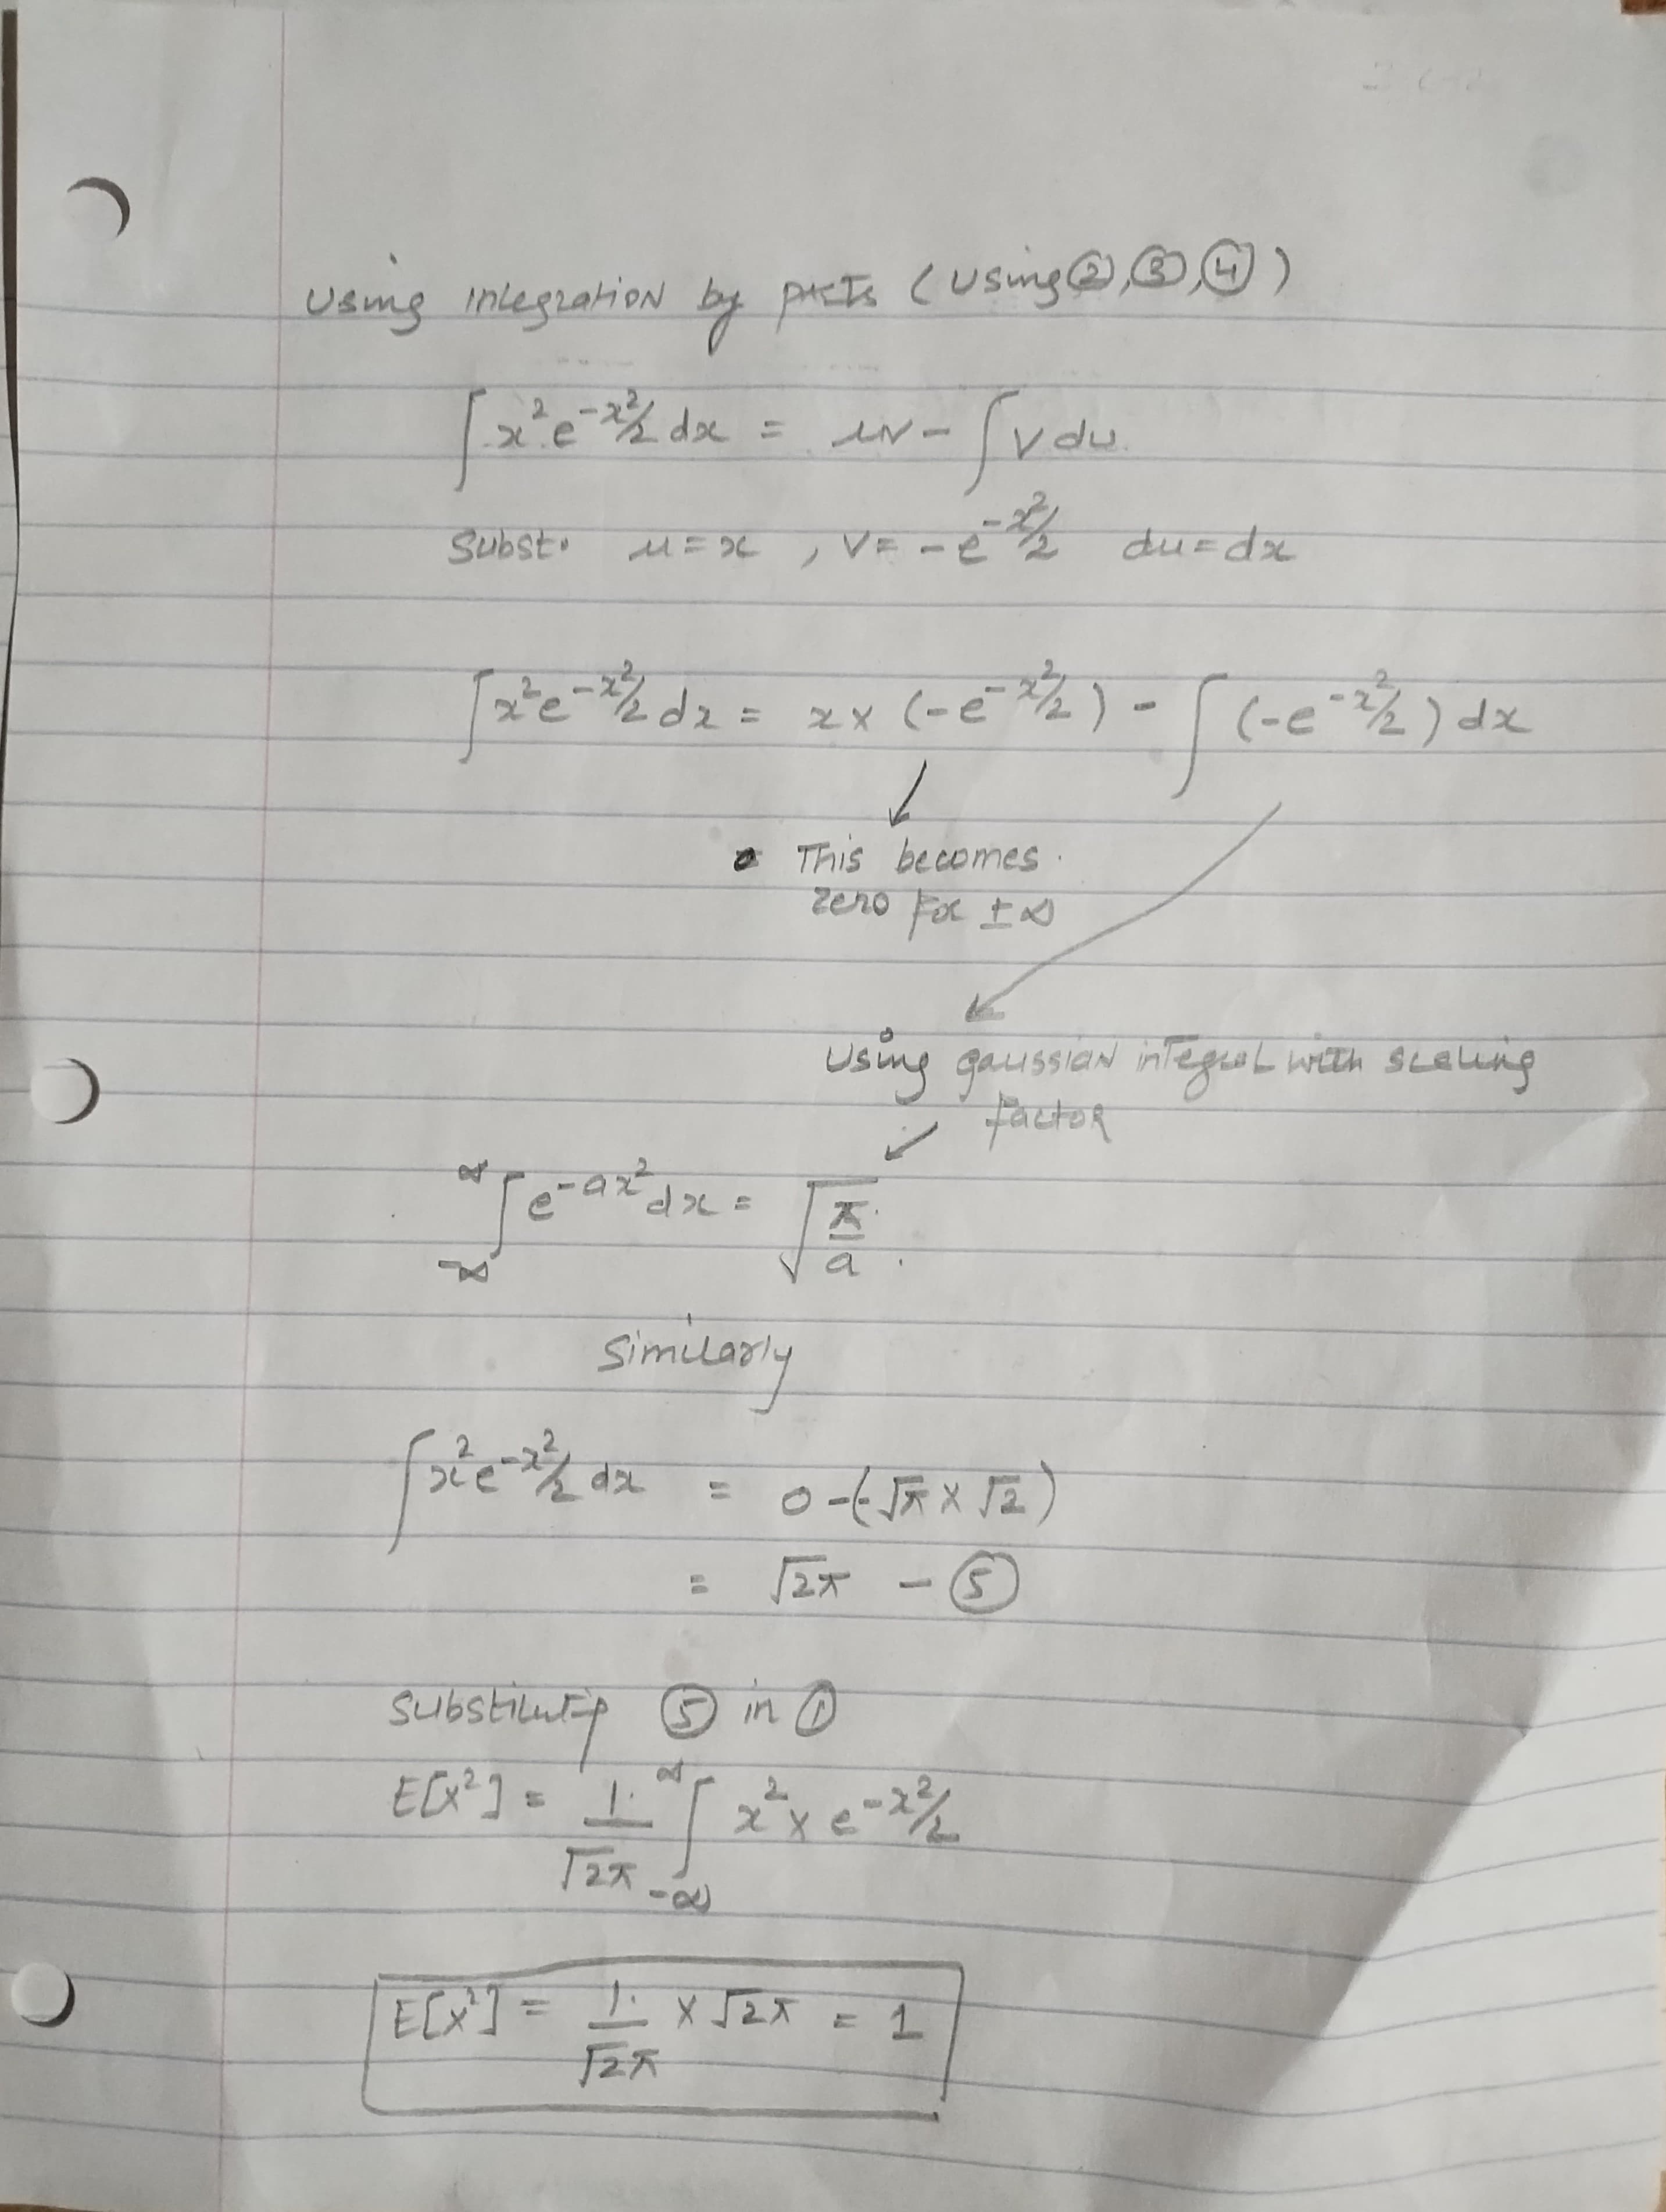 Using integration by parts (using ②,③,④)
∫ x² e^(-x²/2) dx = uv - ∫ v du
Subst. u = x , v = -e^(-x²/2) du = dx
∫ x² e^(-x²/2) dx = x × (-e^(-x²/2)) - ∫ (-e^(-x²/2)) dx
This becomes
zero for ± ∞
Using gaussian integral with scaling
factor
∫_(-∞)^∞ e^(-ax²) dx = √(π/a)
Similarly
∫ x² e^(-x²/2) dx = 0 - (-√π × √2)
= √2π - ⑤
⑤ in ①
E[x²] = 1/√2π ∫_(-∞)^∞ x² × e^(-x²/2)
E[x²] = 1/√2π × √2π = 1